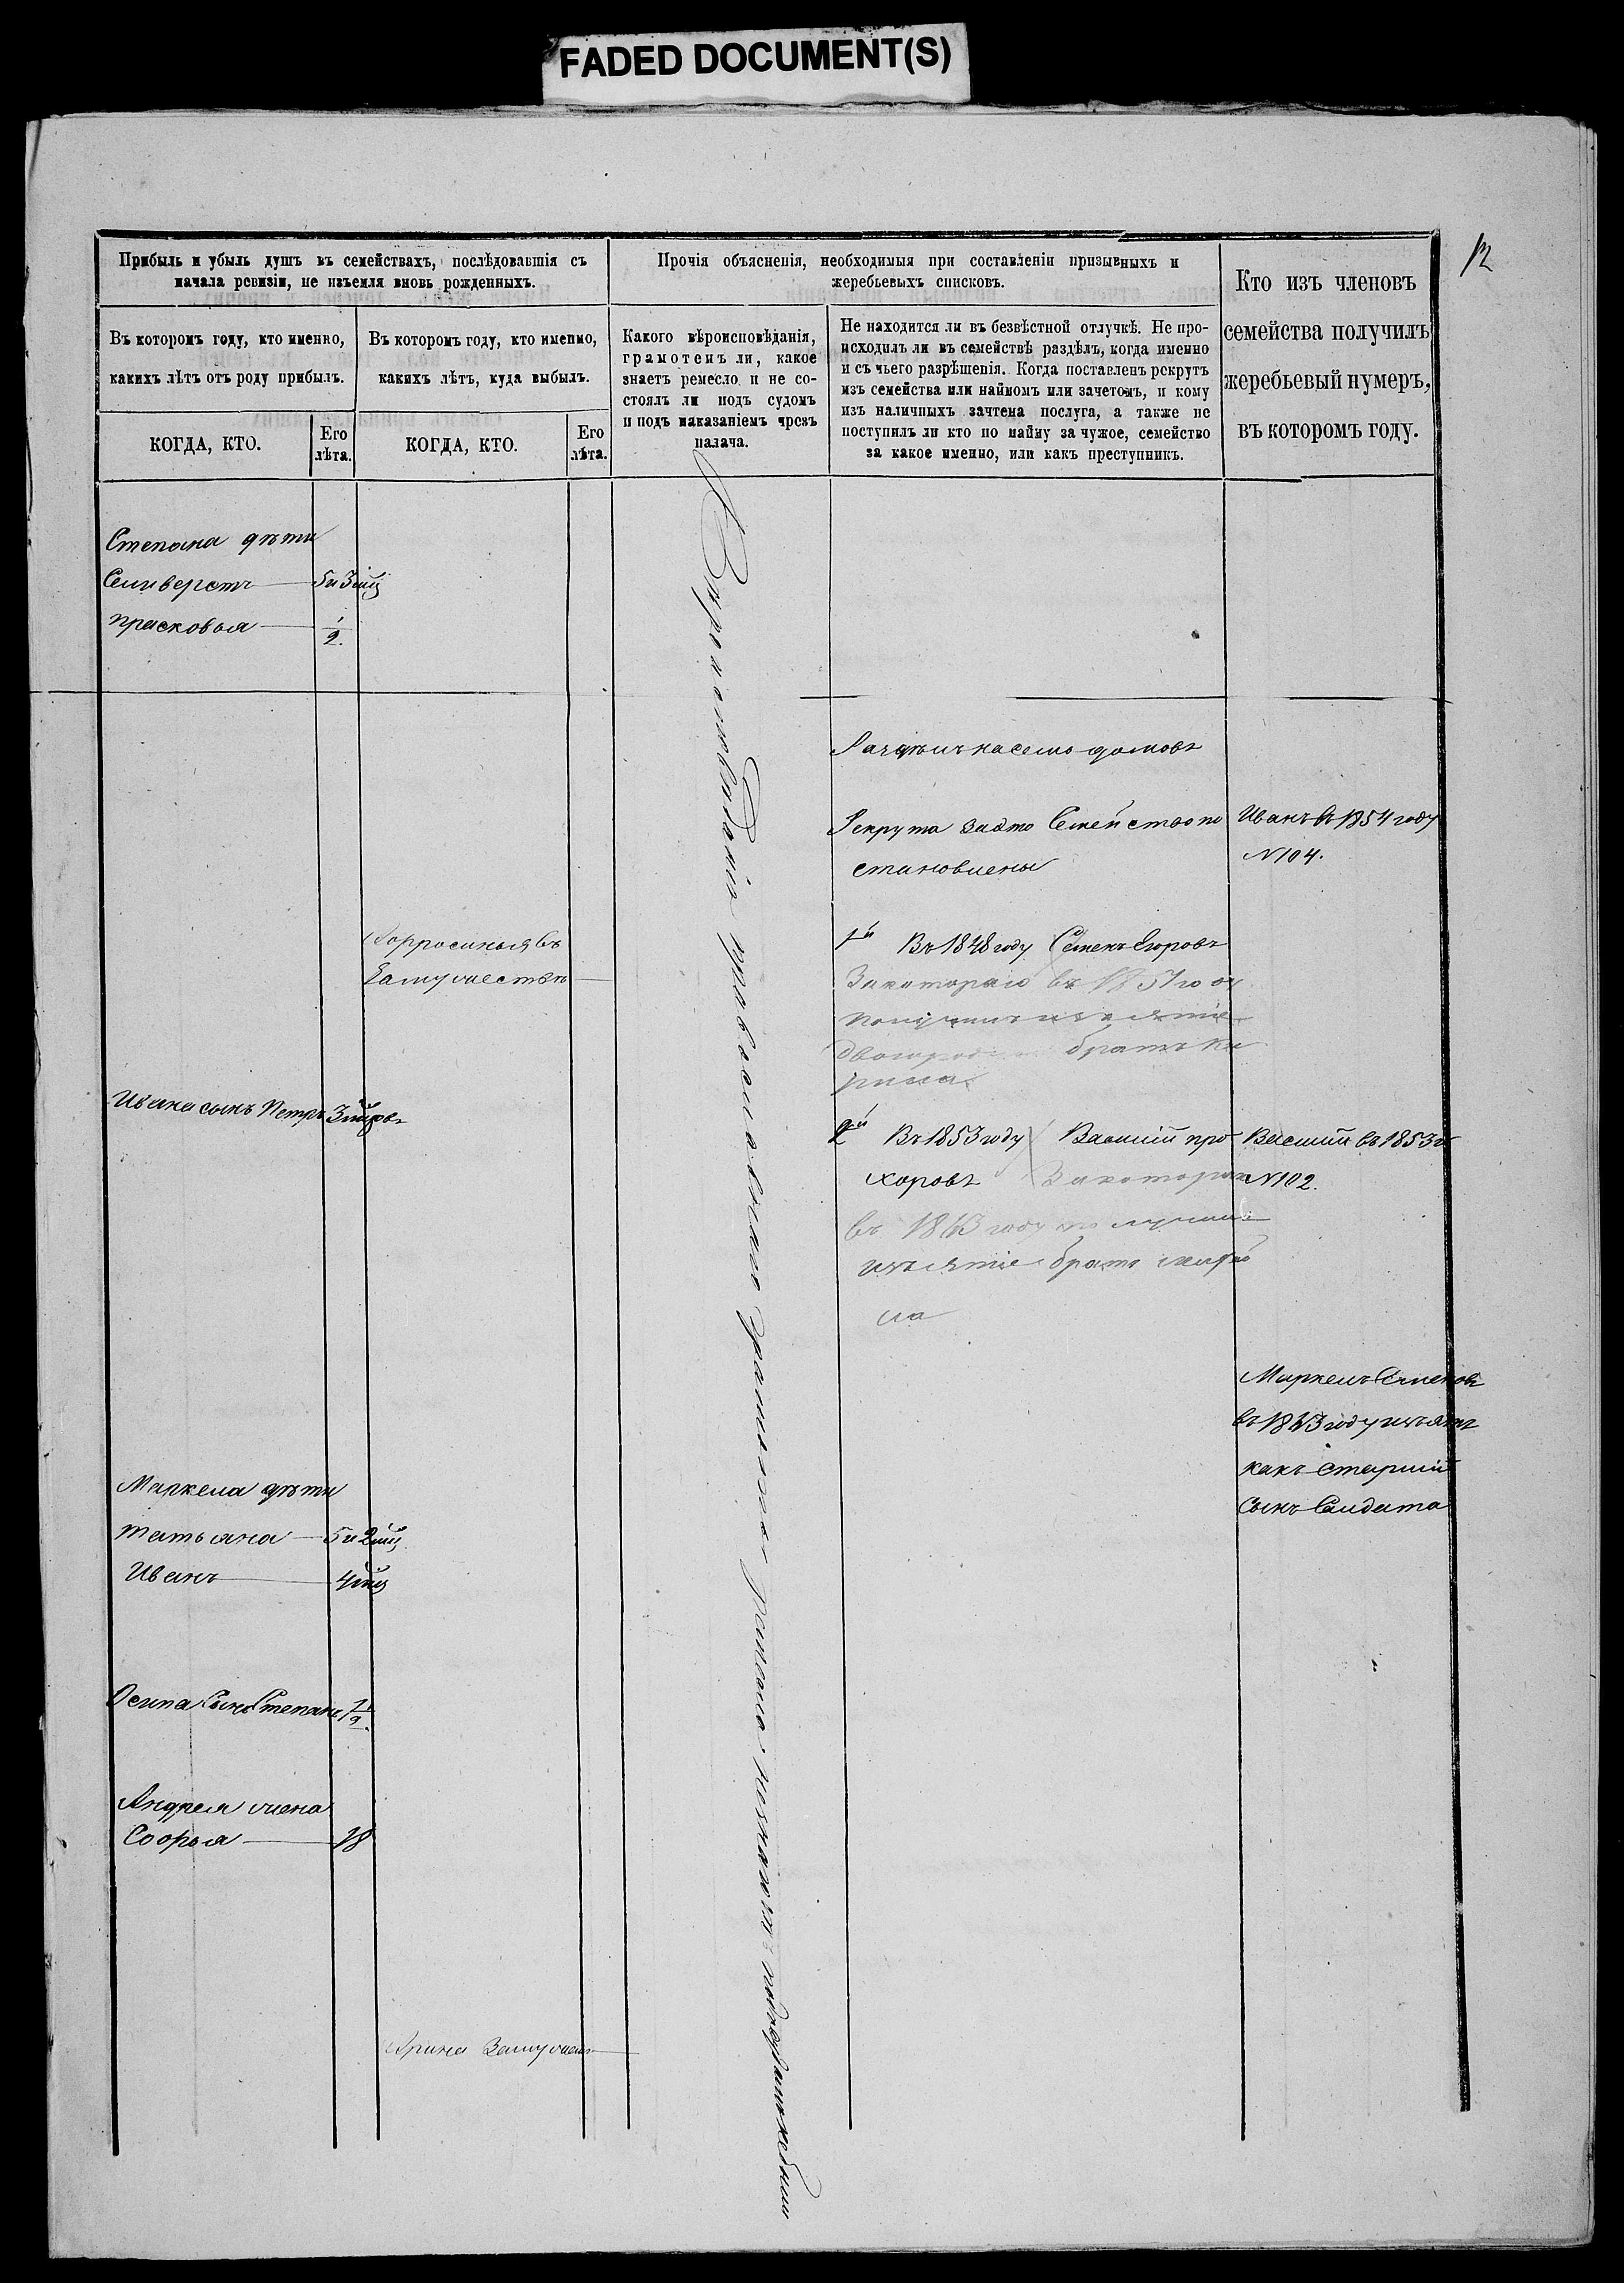 FADED DOCUMENT(S)
12
Прибыль и убыль душъ въ семействахъ, послѣдовавшія съ
начала ревизіи, не изъемля вновь рожденныхъ.
Въ которомъ году, кто именно,
какихъ лѣтъ отъ роду прибылъ.
КОГДА, КТО.
Его
лѣта.
Въ которомъ году, кто именно,
какихъ лѣтъ, куда выбылъ.
КОГДА, КТО.
Его
лѣта.
Прочія объясненія, необходимыя при составленіи призывныхъ и
жеребьевыхъ списковъ.
Какого вѣроисповѣданія,
грамотенъ ли, какое
знаетъ ремесло и не со-
стоялъ ли подъ судомъ
и подъ наказаніемъ чрезъ
палача.
Не находится ли въ безвѣстной отлучкѣ. Не про-
исходилъ ли въ семействѣ раздѣлъ, когда именно
и съ чьего разрѣшенія. Когда поставленъ рекрутъ
изъ семейства или наймомъ или зачетомъ, и кому
изъ наличныхъ зачтена послуга, а также не
поступилъ ли кто по найму за чужое, семейство
за какое именно, или какъ преступникъ.
Кто изъ членовъ
семейства получилъ
жеребьевый нумеръ,
въ которомъ году.
Степана дѣти
Селиверстъ 5 и 3 мц
прасковья 1/2
Ивана сынъ Петръ
Маркела дѣти
татьяна 5 и 2 мц
Иванъ 4 мц
Осипа сынъ Степанъ 1/2
Андрея жена
Софья 18
въ
Замужествѣ
Арина Замужемъ
Вѣроисповѣданія православнаго
на семь домовъ
Рекрута за это Семейство по
становлены
1й Въ 1848 году Семенъ Егоровъ
За котораго въ 1851 году
получилъ изъятіе
двоюродный братъ Ки
рила
2й Въ 1853 году Василій про
хоровъ За котораго
въ 1863 году получилъ
изъятіе братъ
ла
Иванъ въ 1854 году
N 104.
Василій въ 1853 г
N 102.
Маркелъ Семеновъ
въ 1863 году изъятъ
какъ старшій
Сынъ Салдата